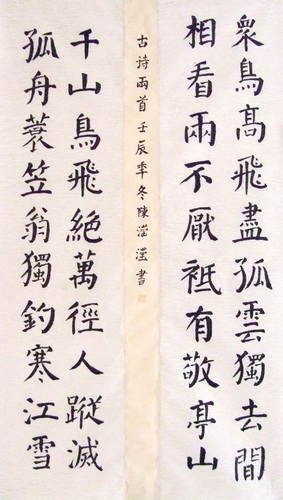 衆鳥髙飛盡孤雲獨去間
相看兩不厭袛有敬亭山
古诗兩首 壬辰年冬陳滢滢書
千山鳥飛絶萬徑人蹤滅
孤舟蓑笠翁獨釣寒江雪